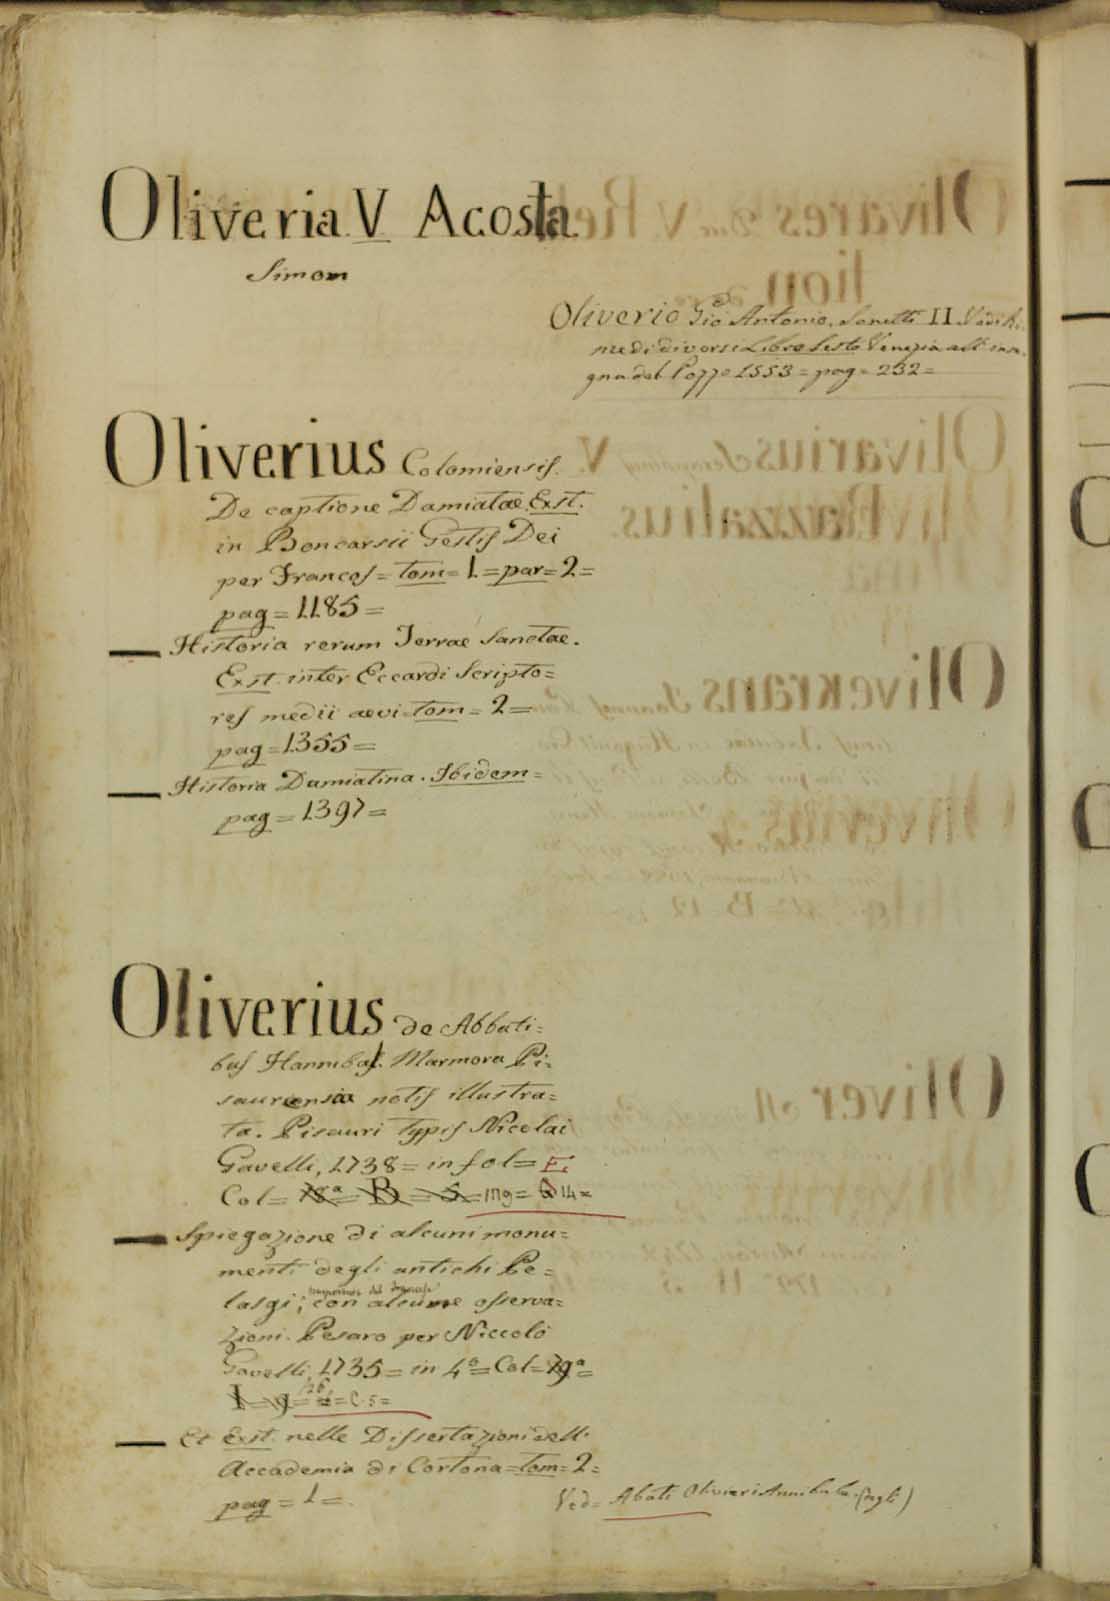 Oliveria V Acosta
Simon
Oliverio Gio Antonio. Sonetti II Vedi Ri-
me di diversi Libro Sesto Venezia all' inse-
gna del Pozzo 1553 = pag = 232 =
Oliverius Coloniensis.
De captione Damiatae. Ext.
in Boncarsii Gestis Dei
per Francos = tom = 1 = par = 2 =
pag = 1185 =
Historia rerum Terrae Sanctae.
Ext. inter Eccardi Scripto=
res medii aevi = tom = 2 =
pag = 1355 =
Historia Damiatina. Ibidem =
pag = 1397 =
Oliverius de Abbati=
bus Hannibal. Marmora Pi=
saurensia notis illustra=
ta. Pisauri typis Nicolai
Gavelli, 1738 = in fol = F.
Col = 78ª = B = 5 = 119 = 14 =
Spiegazione di alcuni monu=
menti degli antichi Pe=
lasgi; con alcune osserva=
zioni. Pesaro per Niccolò
Gavelli, 1735 = in 4º = Col = 79ª =
I = g = 126 = C. 5 =
Et Ext. nelle Dissertazioni dell'
Accademia di Cortona = tom = 2 =
pag = 1 =
Ved = Abati Olivieri Annibale (degli)